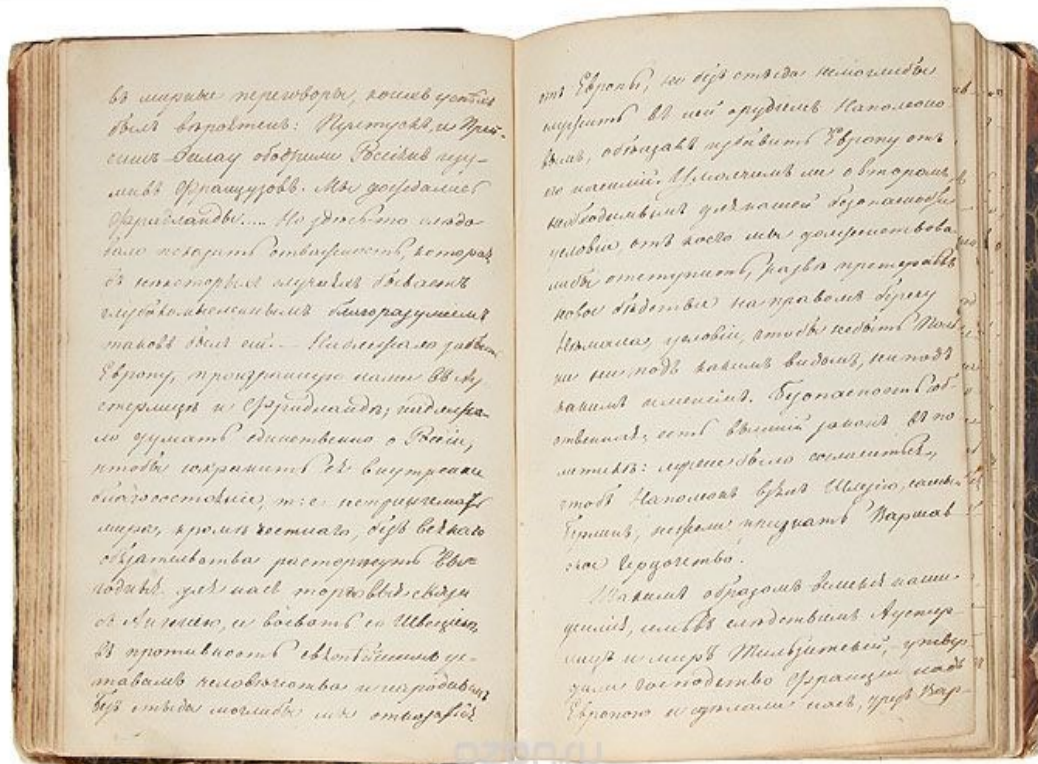 въ мирные переговоры, коихъ успѣхъ
былъ вѣроятенъ: Пултускъ, и Прей-
сишъ-Эйлау ободрили Россіянъ изу-
мивъ Французовъ. Мы дождались
Фридланды..... Но здѣсь-то слѣдо-
вало показать отважность, которая
въ некоторыхъ случаяхъ бываетъ
глубокомысленнымъ благоразуміемъ
таковъ былъ сей. — Надлежало забыть
Европу, проигранную нами въ Ау-
стерлицѣ и Фридландѣ; надлежа-
ло думать единственно о Россіи,
чтобы сохранить ея внутренне
благосостояніе, т: е не принимать
мира, кромѣ честнаго, безъ всякаго
обязательства расторгнуть вы-
годныя для насъ торговыя связи
съ Англіею, и воевать со Швеціею,
въ противность святѣйшимъ ус-
тавамъ человѣчества и народнымъ
безъ стыда моглибы мы отказаться
отъ Европы, но безъ стыда немоглибы
служить въ ней орудіемъ Наполеоно
вымъ, обязавъ избавить Европу отъ
его насилій. Умолчимъ ли о второмъ,
необходимымъ для нашей безопасности
условіи, отъ коего мы долженствова-
либы отступить, развѣ претерпѣвъ
новое бѣдствіе на правомъ берегу
Нѣмана, условіи, чтобы небыть Поль
ше ни подъ какимъ видомъ, ни подъ
какимъ именемъ. Безопасность соб-
ственная, есть высшій законъ въ по
литикѣ: лучше было согласиться,
чтобъ Наполеонъ взялъ Шлезію, самый
Берлинъ, нежели признать Варшав
ское Герцогство.
Такимъ образомъ великія наши
усилія, имѣвъ слѣдствіемъ Аустер-
лицъ и миръ Тильзитскій, утвер-
дили господство Франціи надъ
Европою и сдѣлали насъ, чрезъ Вар-